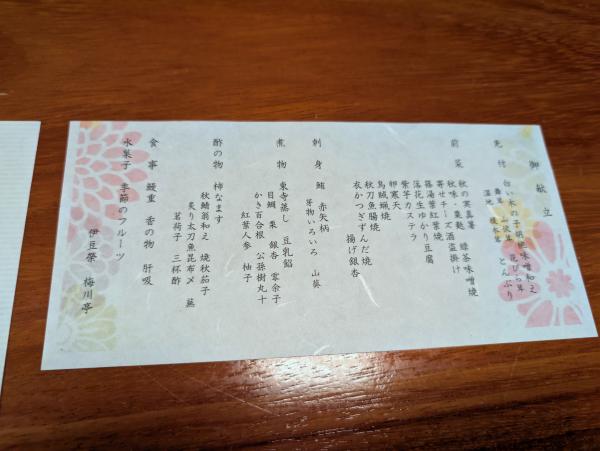 御献立
先付 白い木の子胡桃味噌和え
舞茸 えのき茸 花びら茸
湿地 榎木茸 とんぶり
前菜 秋の実真薯 緑茶味噌焼
秋味・粟麩 酒盗掛け
寄せチーズ
篠湯葉紅葉焼
落花生ゆかり豆腐
紫芋カステラ
卵寒天
烏賊蝋焼
秋刀魚腸焼
衣かつぎずんだ焼 揚げ銀杏
刺身 鮪 赤矢柄
芽物いろいろ 山葵
煮物 東寺蒸し 豆乳餡
目鯛 栗 銀杏 零余子
かき百合根 公孫樹丸十
紅葉人参 柚子
酢の物 柿なます
秋鯖翁和え 焼秋茄子
炙り太刀魚昆布〆 蕪
茗荷子 三杯酢
食事 鰻重 香の物 肝吸
水菓子 季節のフルーツ
伊豆榮 梅川亭